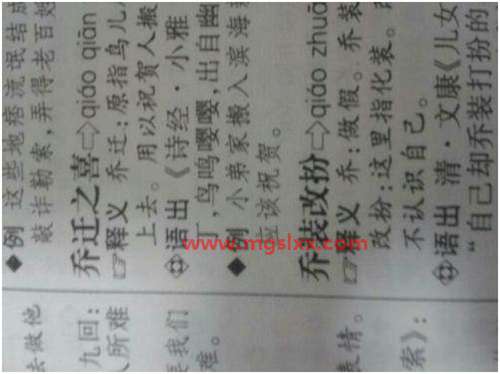 例 这些地痞流氓结成
敲诈勒索,弄得老百姓
乔迁之喜 qiáo qiān
释义 乔迁:原指鸟儿
上去。用以祝贺人搬
语出 《诗经·小雅
丁,鸟鸣嘤嘤,出自幽
例 小弟家搬入滨海
应该祝贺。
乔装改扮 qiáo zhuā
释义 乔:做假。乔装
改扮:这里指化装。
不认识自己。
语出 清·文康《儿女
“自己却乔装打扮的
去做他
九回:
人所难
要我们
难。
表情。
索》:
www.mgslxx.com